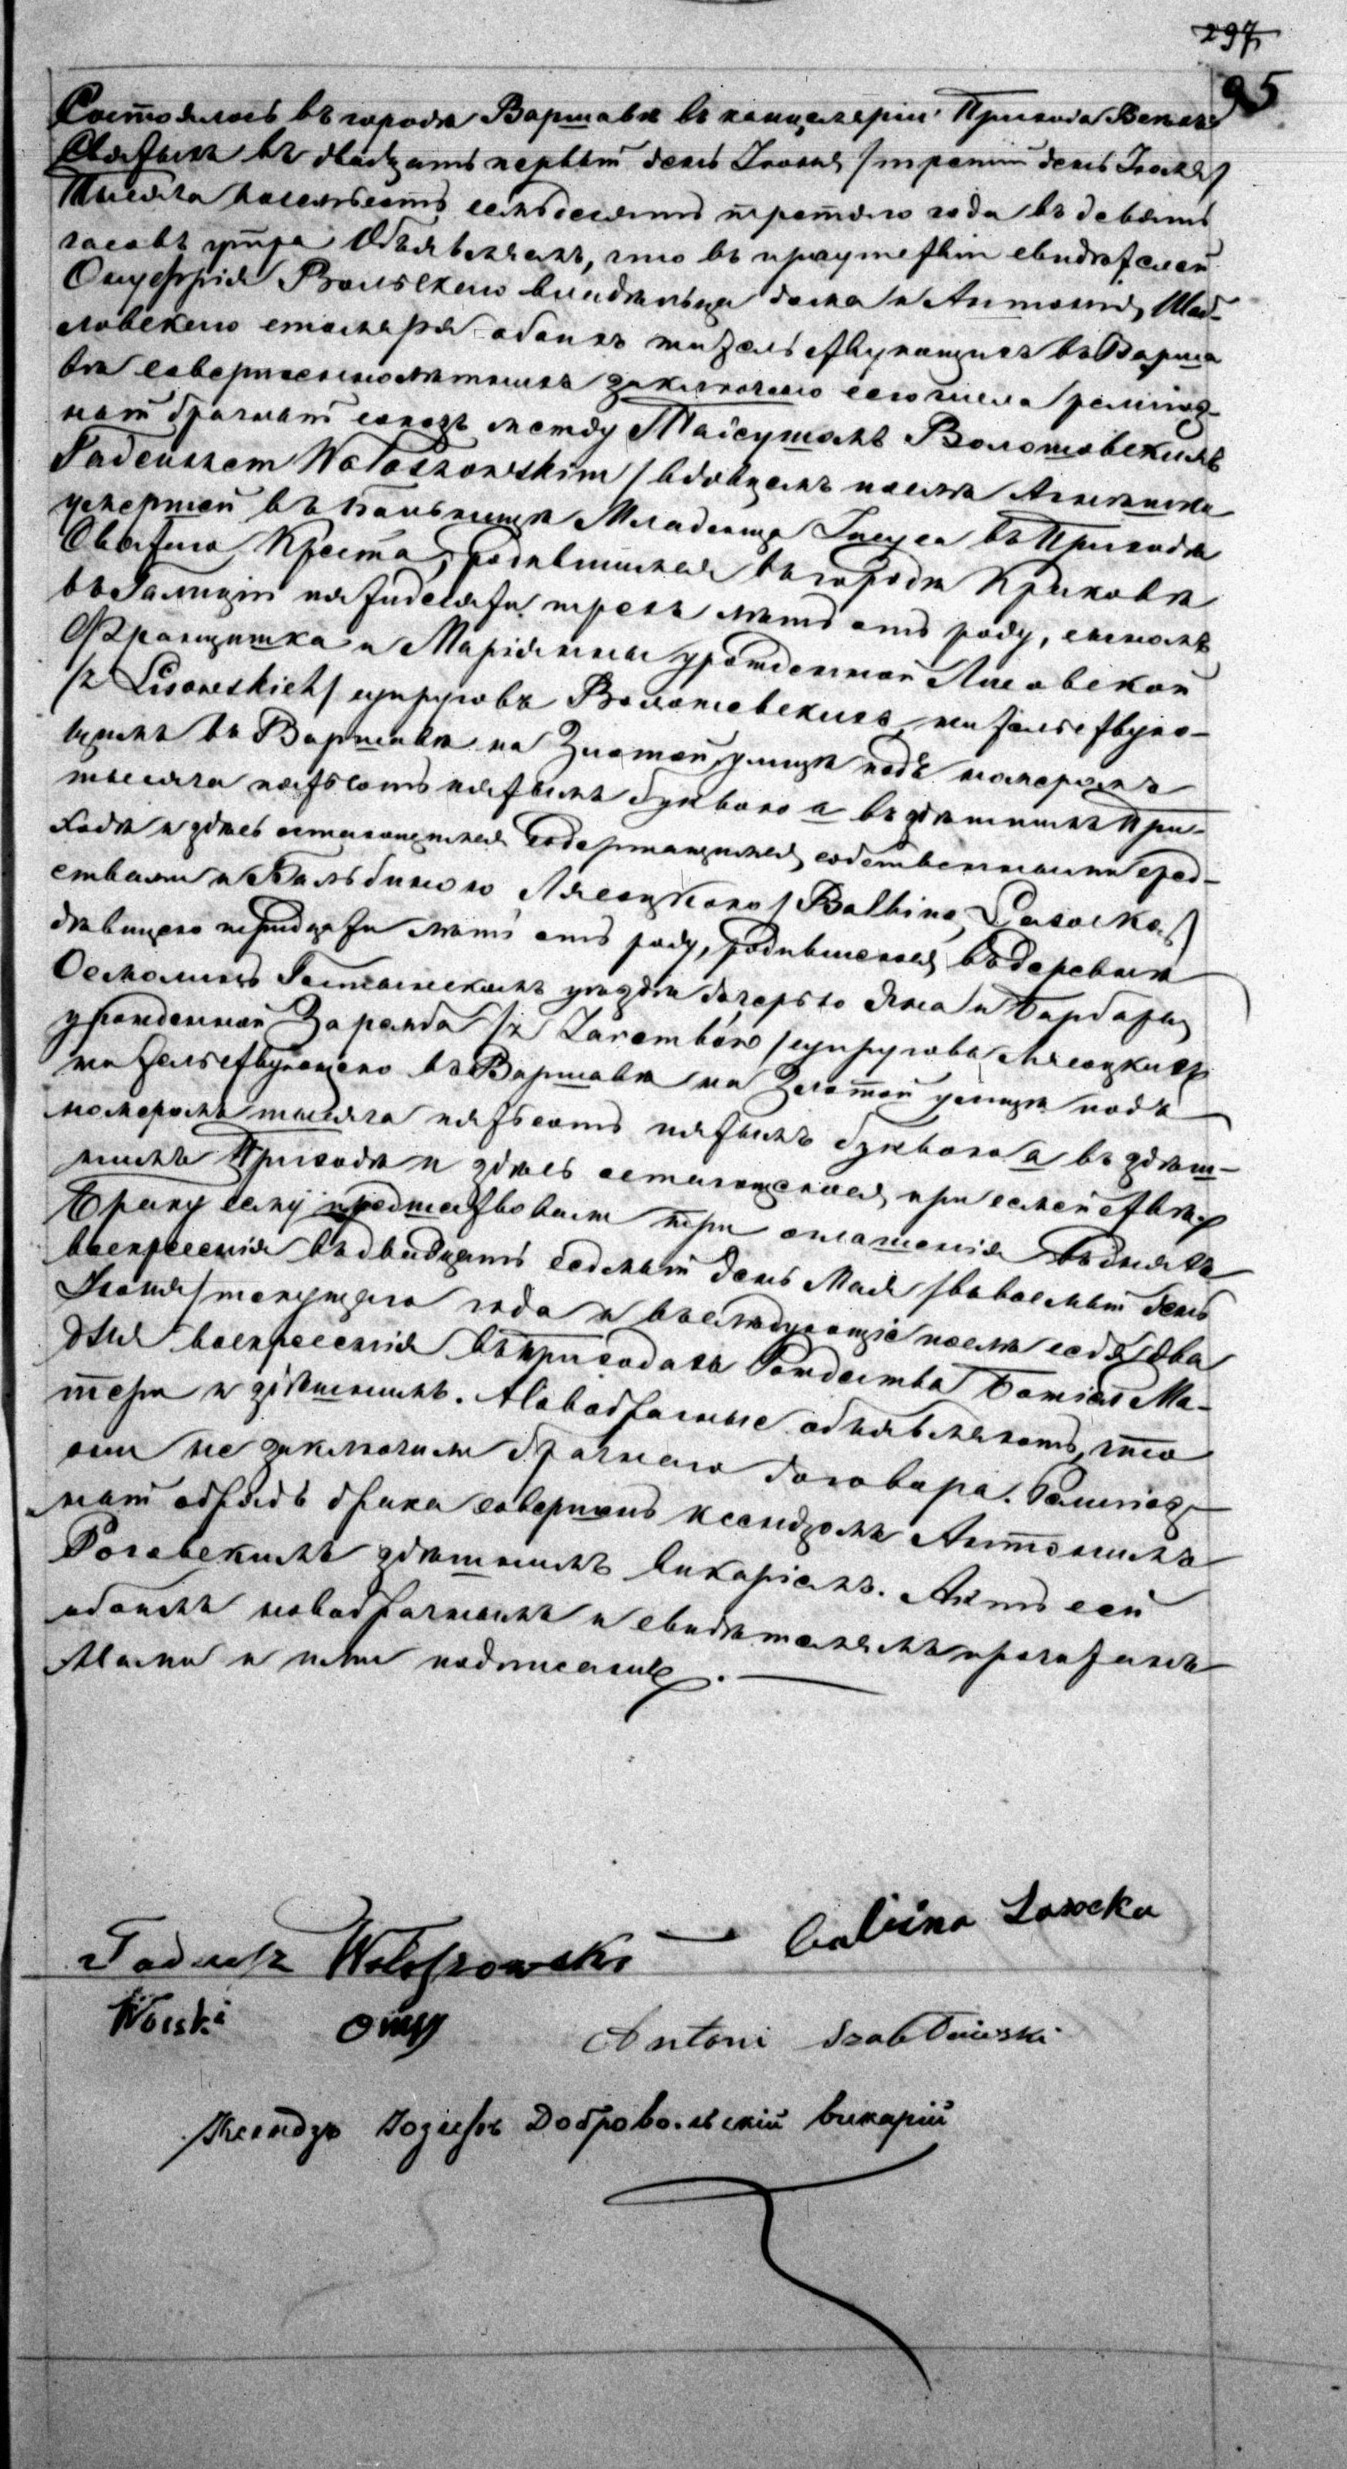 297
95
Состоялось въ городѣ Варшавѣ въ канцеляріи Прихода Всѣхъ
Святыхъ въ двадцать первый день Іюня /третій день Іюля/
Тысяча восемьсотъ семьдесятъ третяго года въ девять
часовъ утра Объявляемъ, что въ присутствіи свидѣтелей
Онуфрія Вольскаго владѣльца дома и Антонія Шаб-
ловскаго столяра обоихъ жительствующихъ въ Варша
вѣ совершеннолѣтнихъ заключено сего числа религіоз-
ный брачный союзъ между Тадеушомъ Волошовскимъ
Tadeuszem Wołoszowskim /вдовцемъ послѣ Агнѣшки
умершей въ Больницѣ Младенца Іисуса въ Приходѣ
Святаго Креста, родившимся въ городѣ Краковѣ
въ Галиціи пятидесяти трехъ лѣтъ отъ роду, сыномъ
Францишка и Маріянны урожденной Лисовской
/z Lisowskich/ супруговъ Волошовскихъ, жительствую-
щимъ въ Варшавѣ на Златой улицѣ подъ номеромъ
тысяча пятьсотъ пятымъ буквою а въ здѣшнимъ При-
ходѣ и здѣсь остающимся содержащимся собственными сред-
ствами и Бальбиною Лясоцкою /Balbina Lasocka/
дѣвицею тридцати лѣтъ отъ роду, родившеюся въ деревни
Осмолинъ Гостынскомъ уѣздѣ дочерью Яна и Барбары
урожденной Заремба /z Zarembów/ супруговъ Лясоцкихъ
жительствующею въ Варшавѣ на Золотой улицѣ подъ
номеромъ тысяча пятьсотъ пятымъ буквою а въ здѣш-
нимъ Приходѣ и здѣсь остающеюся при семействѣ.
Браку сему предшествовали три оглашенія въ дняхъ
воскресенія въ двадцать седьмый день Мая /въ восьмый день
Іюня/ текущаго года и въ слѣдующіе послѣ себя два
дня воскресенія въ приходахъ Рождества Божіей Ма-
тери и здѣшнимъ. Новобрачные объявляютъ, что
они не заключили брачнаго договора. Религіоз-
ный обрядъ брака совершенъ ксендзомъ Антонимъ
Рогавскимъ здѣшнимъ викаріемъ. Актъ сей
обоимъ новобрачнымъ и свидѣтелямъ прочитанъ
Нами и ними подписанъ.
Tadeusz Wołoszowski Balbina Lasocka
Wolski Onuf Antoni Szabłowski
Ксендзъ Іозефъ Добровольскій викарій